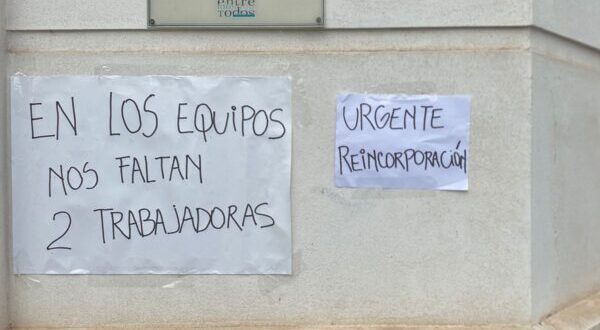 entre
TODOS
EN LOS EQUIPOS
NOS FALTAN
2 TRABAJADORAS
URGENTE
REINCORPORACIÓN